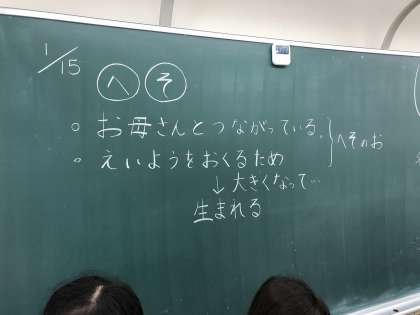 1/15
へそ
○ お母さんとつながっている。
○ えいようをおくるため
へそのお
↓大きくなって…
生まれる